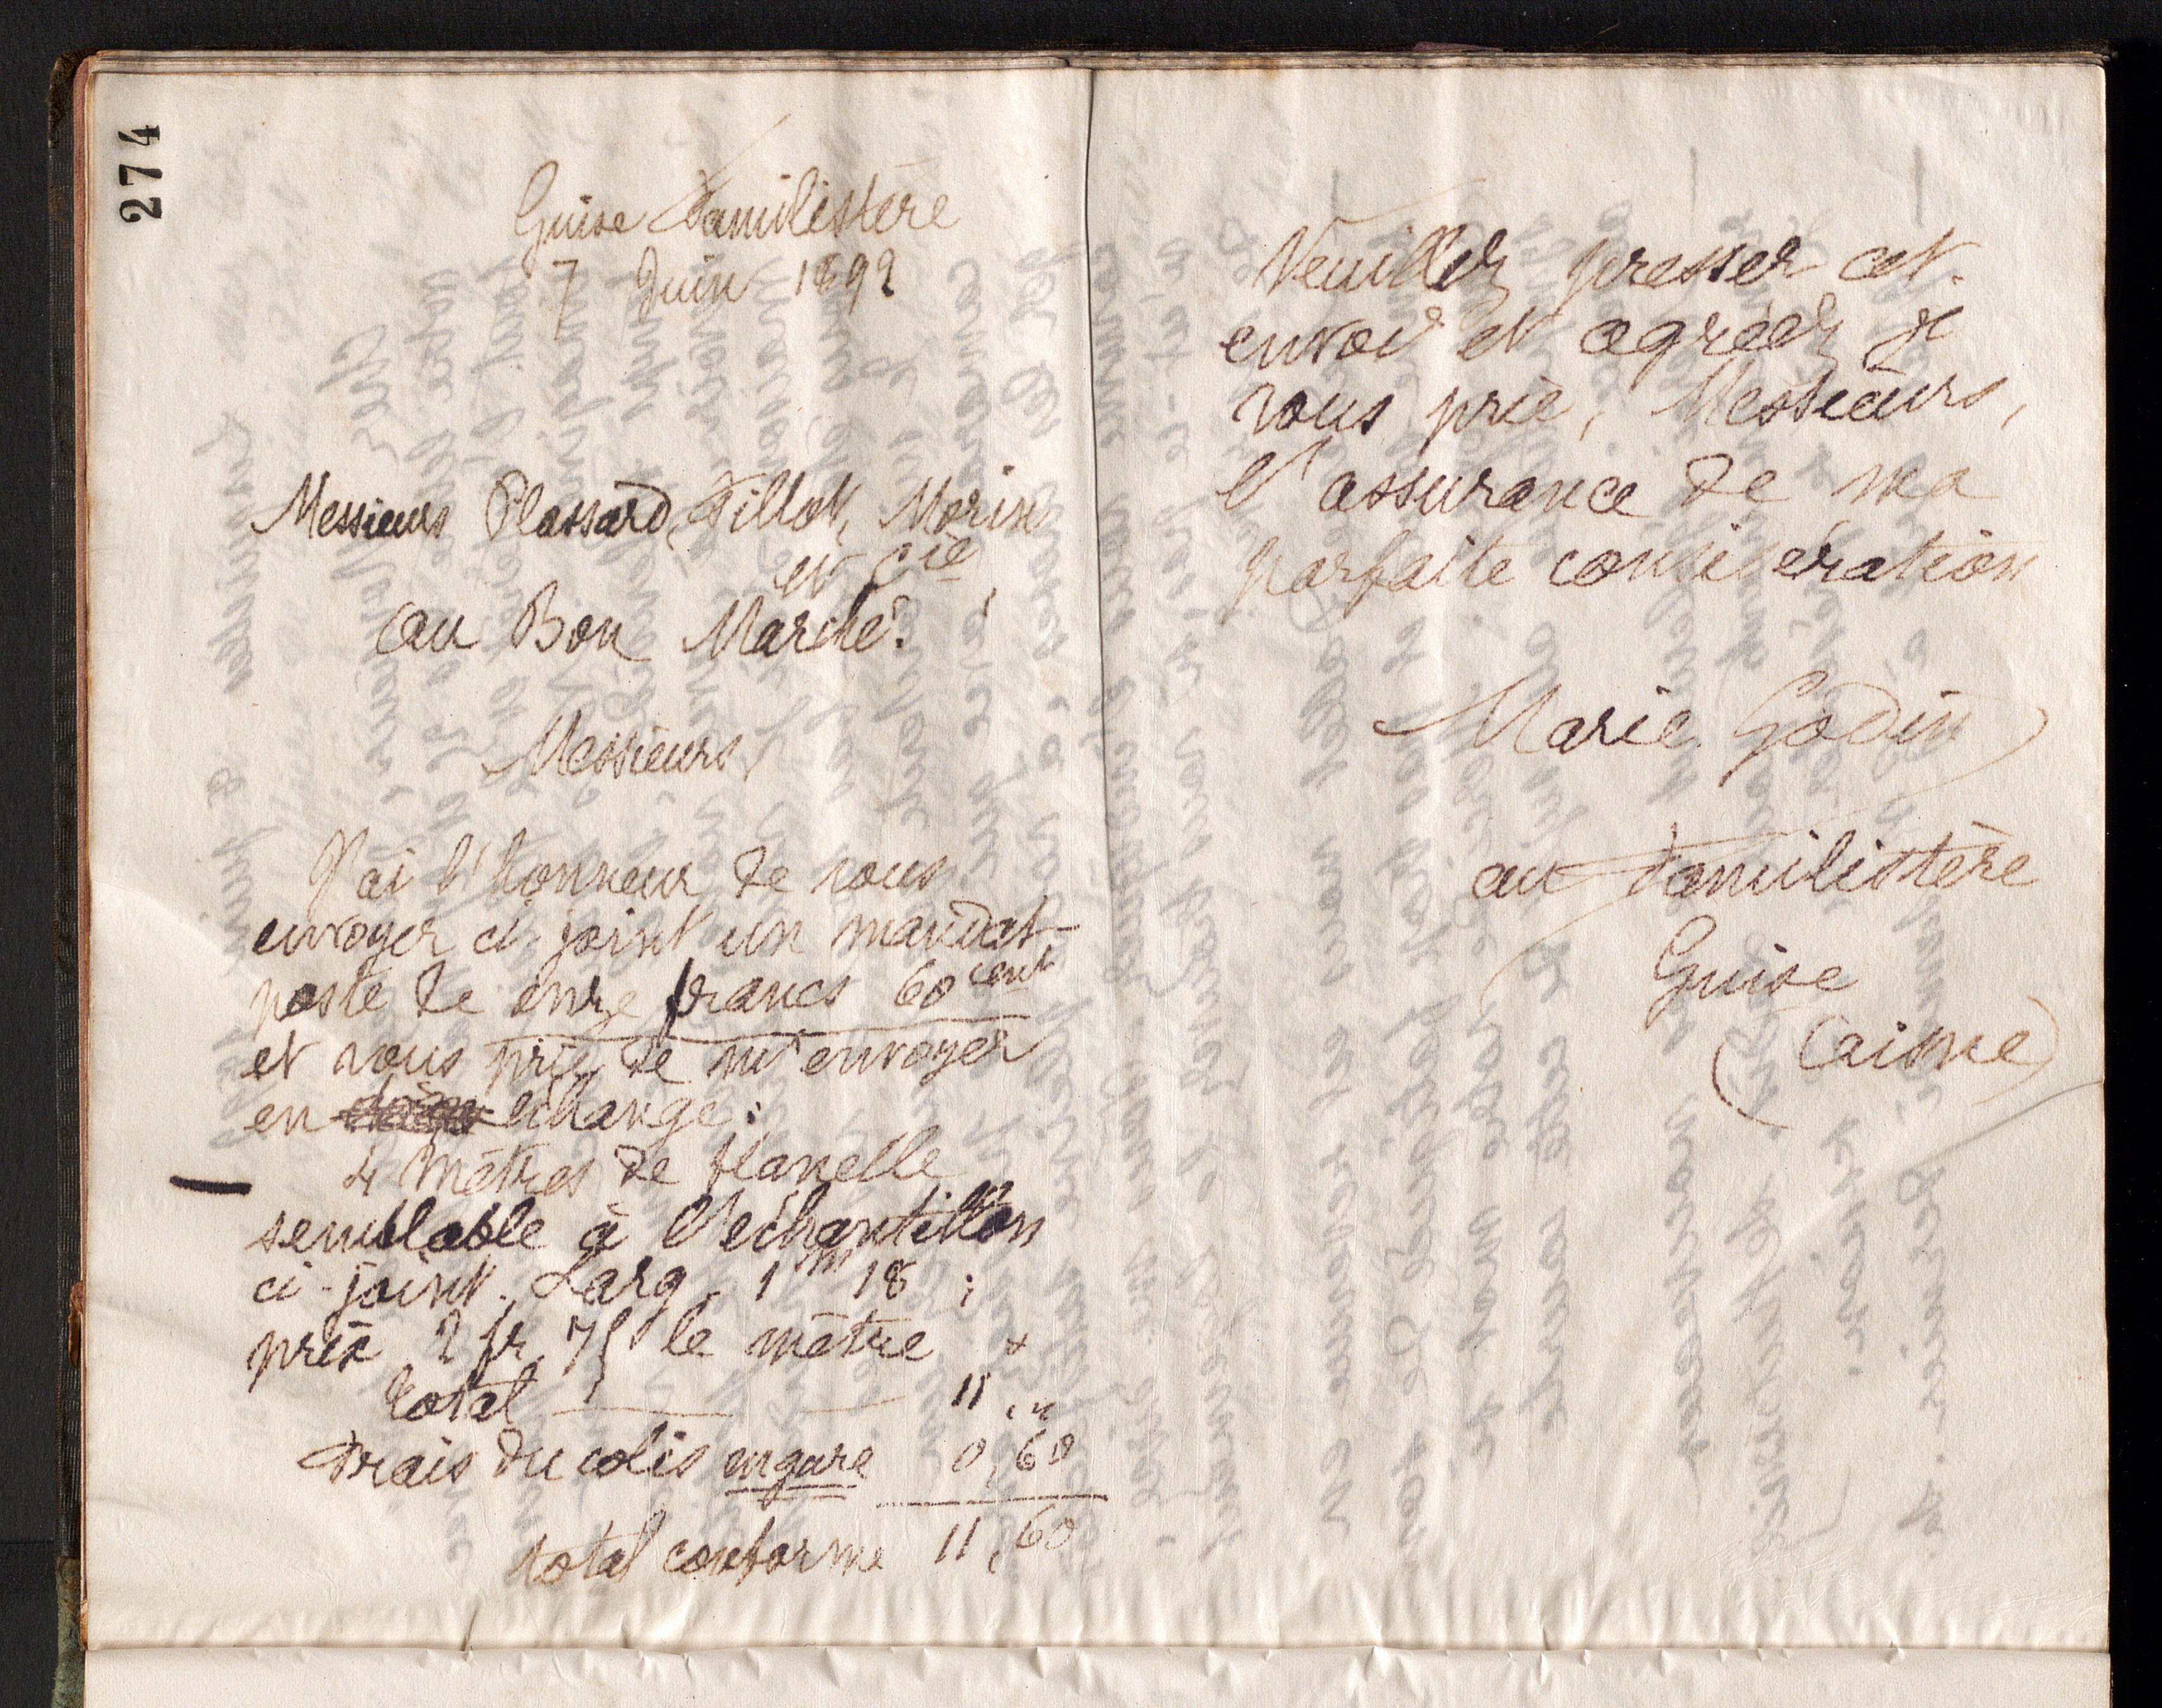 274
Guise Familistère
7 Juin 1892
Messieurs Plassard, Fillot, Morin
et Cie,
au Bon Marché.
Messieurs,
J'ai l'honneur de vous
envoyer ci-joint un mandat-
poste de onze francs 60 cent
et vous prie de m'envoyer
en échange :
4 mètres de flanelle
semblable à l'echantillon
ci-joint. Larg. 1m 18 ;
prix 2 fr. 75 le mètre
total 11,"
Frais du colis en gare 0,60
total conforme 11,60
Veuillez presser cet
envoi et agréer, je
vous prie, Messieurs,
l'assurance de ma
parfaite considération
Marie Godin
au Familistère
Guise
(aisne)